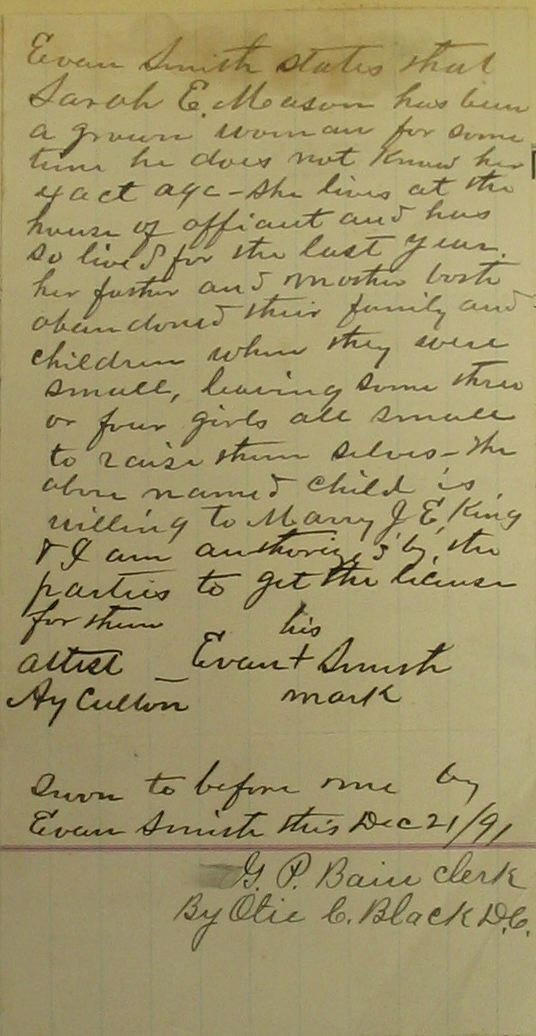 Evan Smith states that
Sarah E. Meason has been
a grown woman for some
time he does not know her
exact age - She lives at the
house of affiant and has
so lived for the last year.
her father and mother both
abandoned their family and
children when they were
small, leaving some three
or four girls all small
to raise them selves - the
above named child is
willing to Marry J. E. King
& I am authorized by the
parties to get the license
for them
his
attest - Evan + Smith
Ay Culton mark
Sworn to before me by
Evan Smith this Dec 21/91
G. P. Bain clerk
By Otie C. Black D.C.